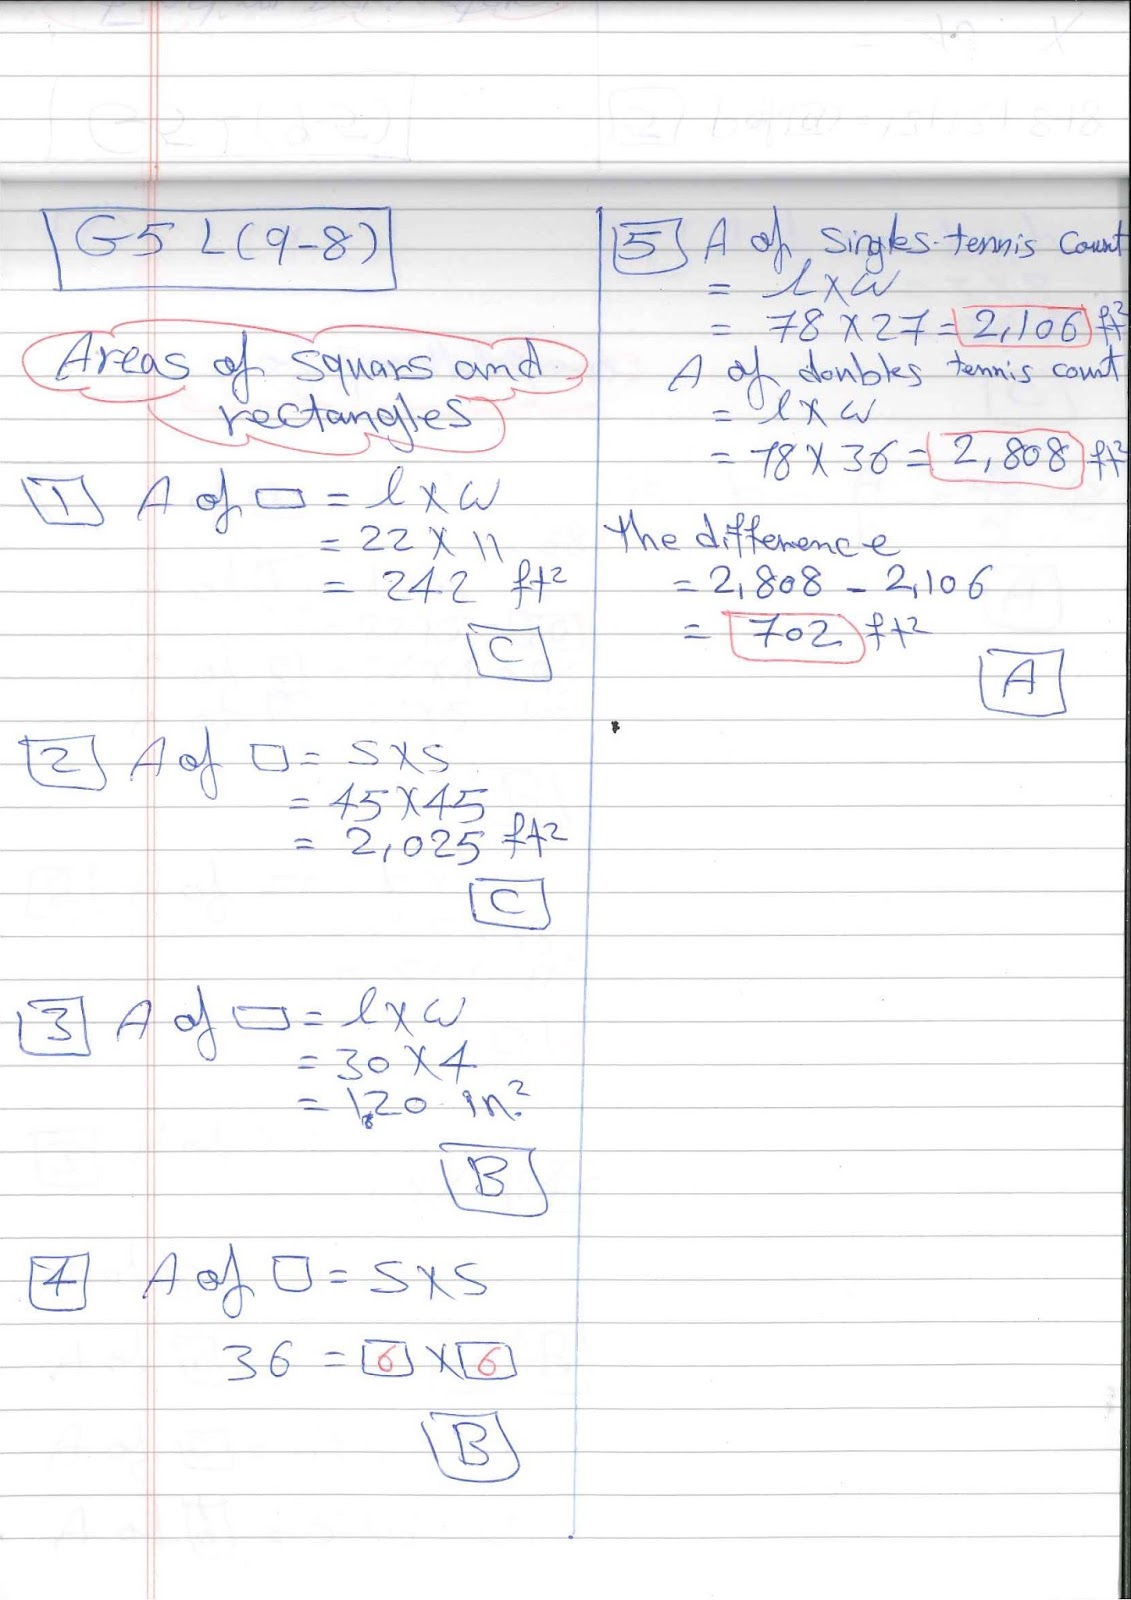 G5 L(9-8)
Areas of squars and
rectangles
1 A of ▭ = l x w
= 22 x 11
= 242 ft²
C
2 A of □ = S x S
= 45 x 45
= 2,025 ft²
C
3 A of ▭ = l x w
= 30 x 4
= 120 in.²
B
4 A of □ = S x S
36 = 6 x 6
B
5 A of singles-tennis count
= l x w
= 78 x 27 = 2,106 ft²
A of doubles tennis count
= l x w
= 78 x 36 = 2,808 ft²
the difference
= 2,808 - 2,106
= 702 ft²
A